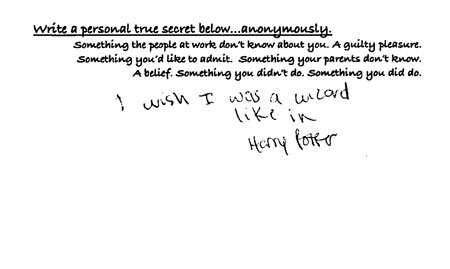 Write a personal true secret below...anonymously.
Something the people at work don't know about you. A guilty pleasure.
Something you'd like to admit. Something your parents don't know.
A belief. Something you didn't do. Something you did do.
I wish I was a wizard
like in
Harry Potter